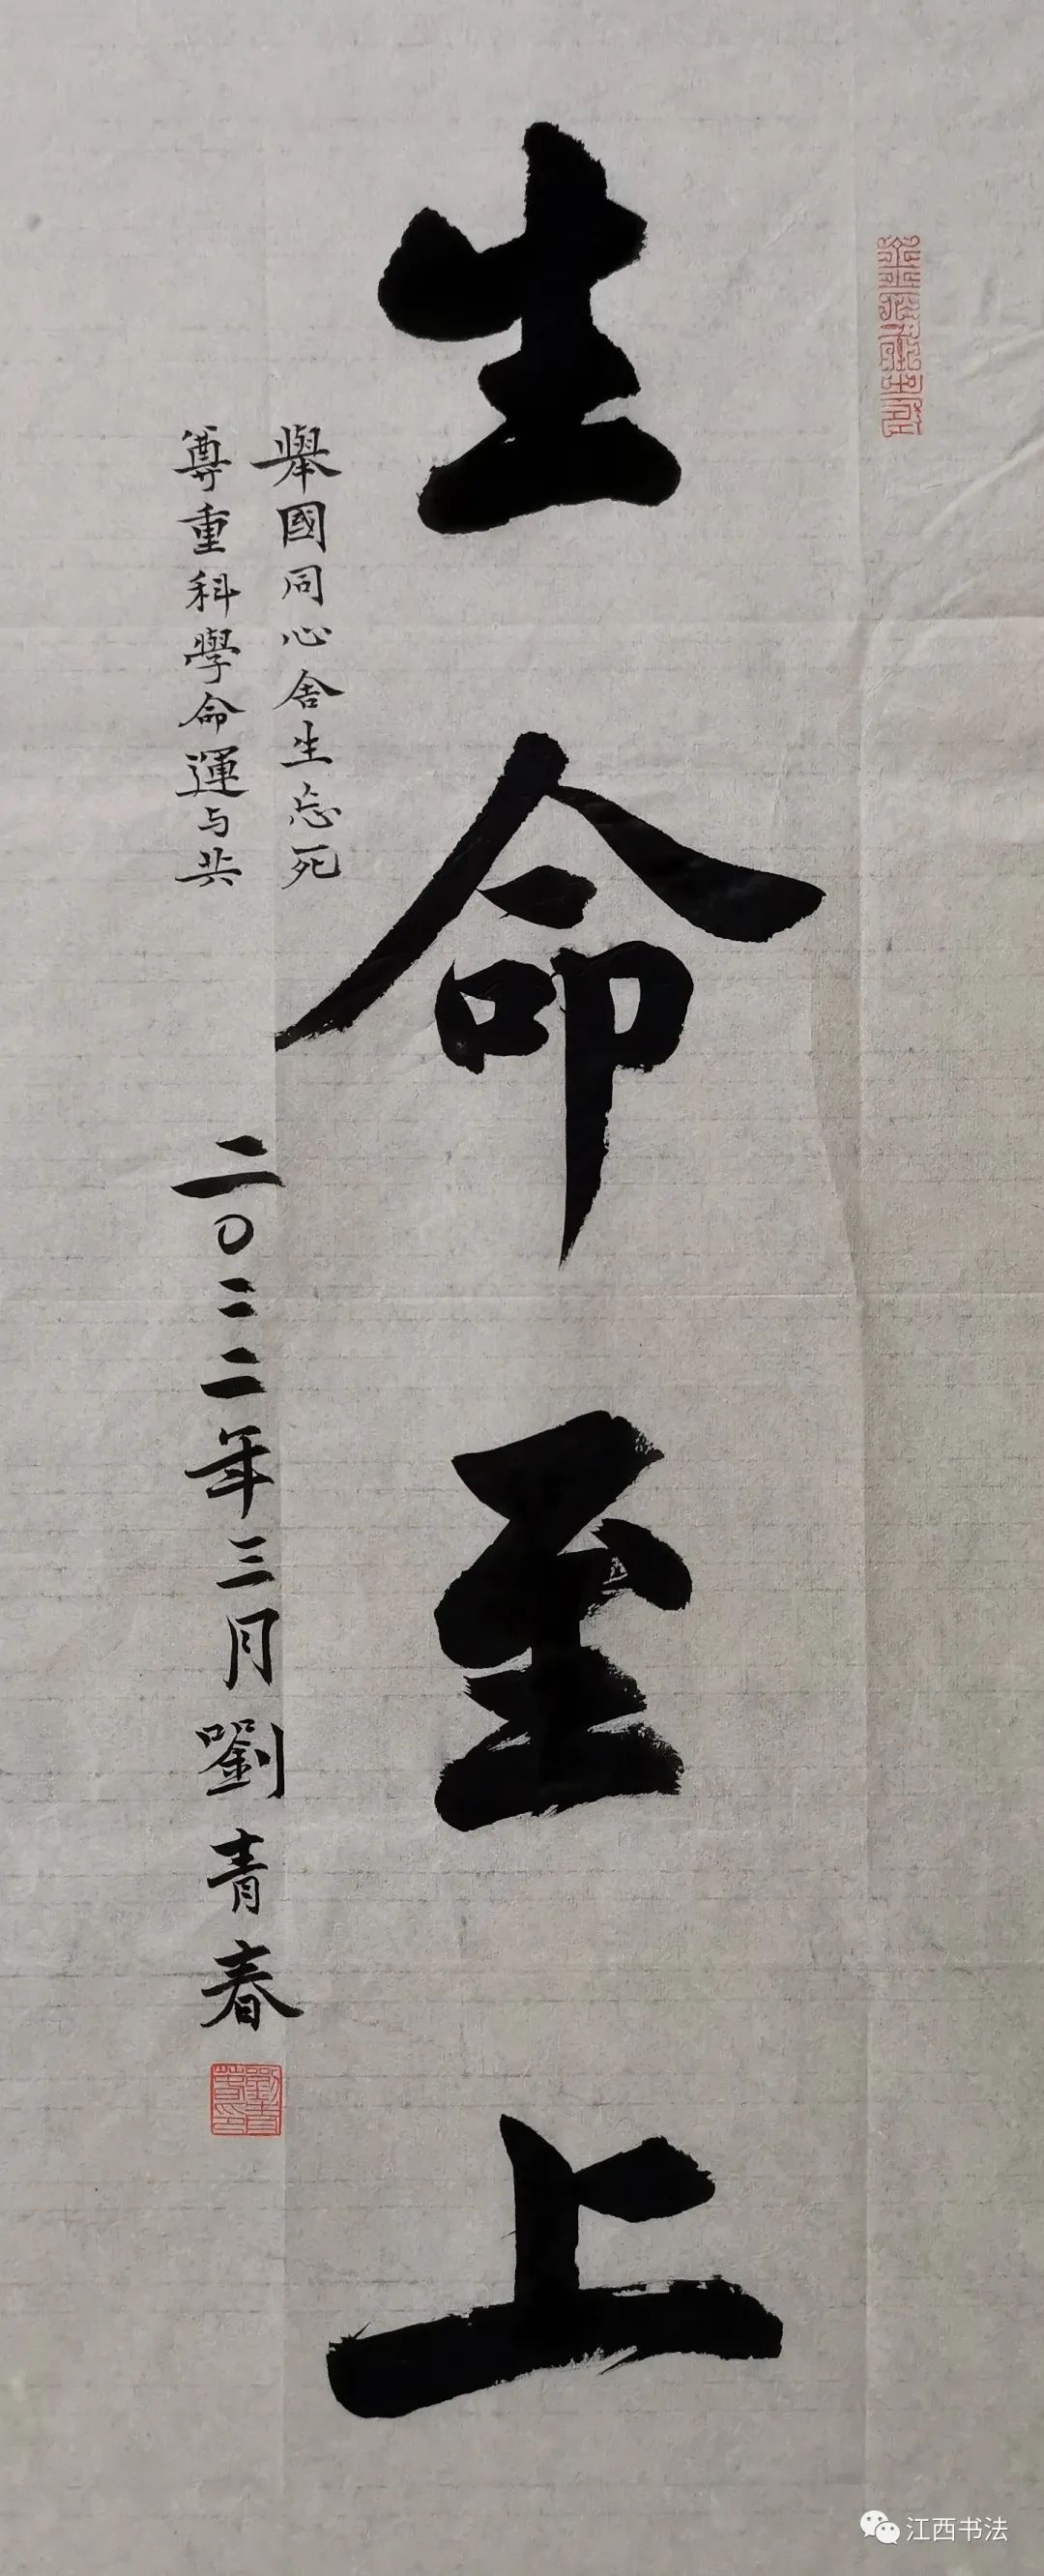 生命至上
舉國同心舍生忘死
尊重科學命運与共
二〇二二年三月劉青春
劉青春印
江西书法